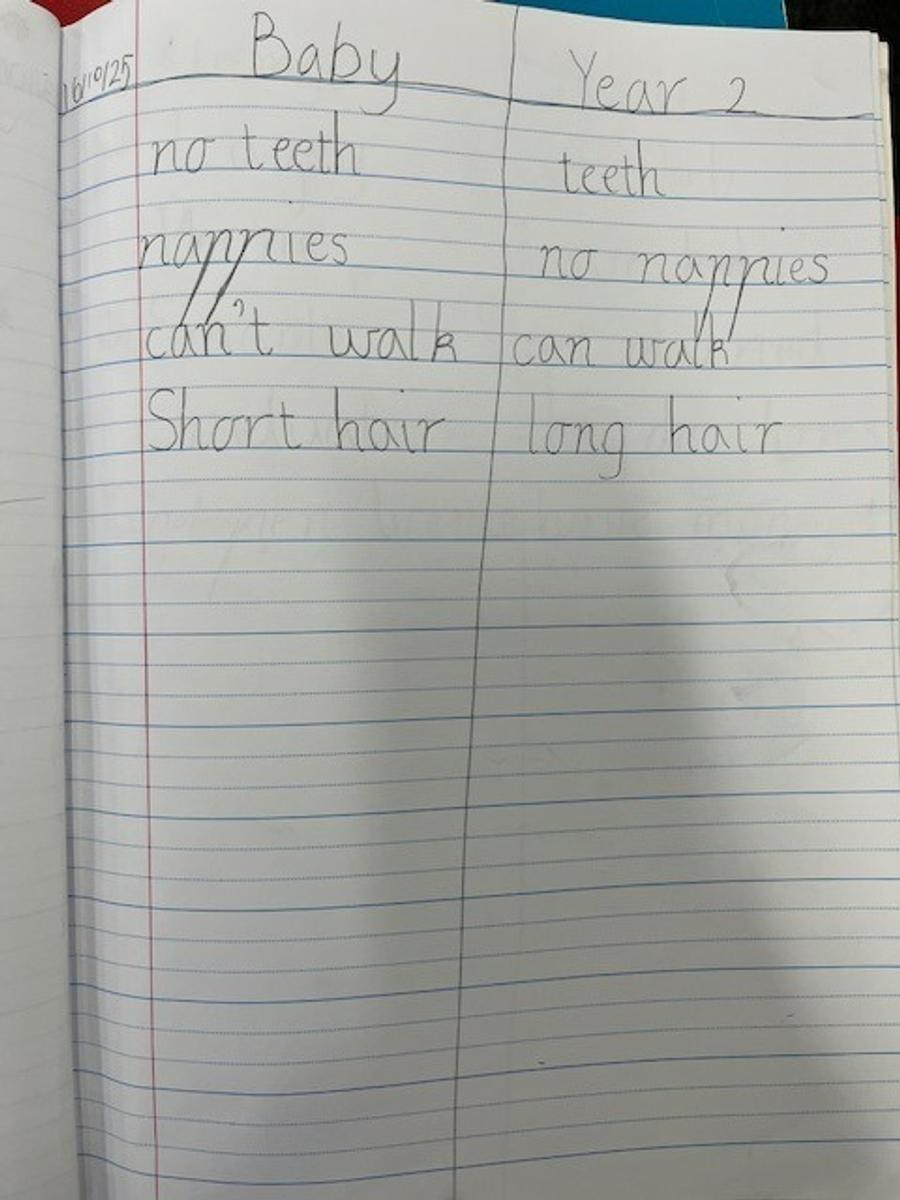 Baby Year 2
16/10/25
no teeth teeth
nappies no nappies
can't walk can walk
Short hair long hair